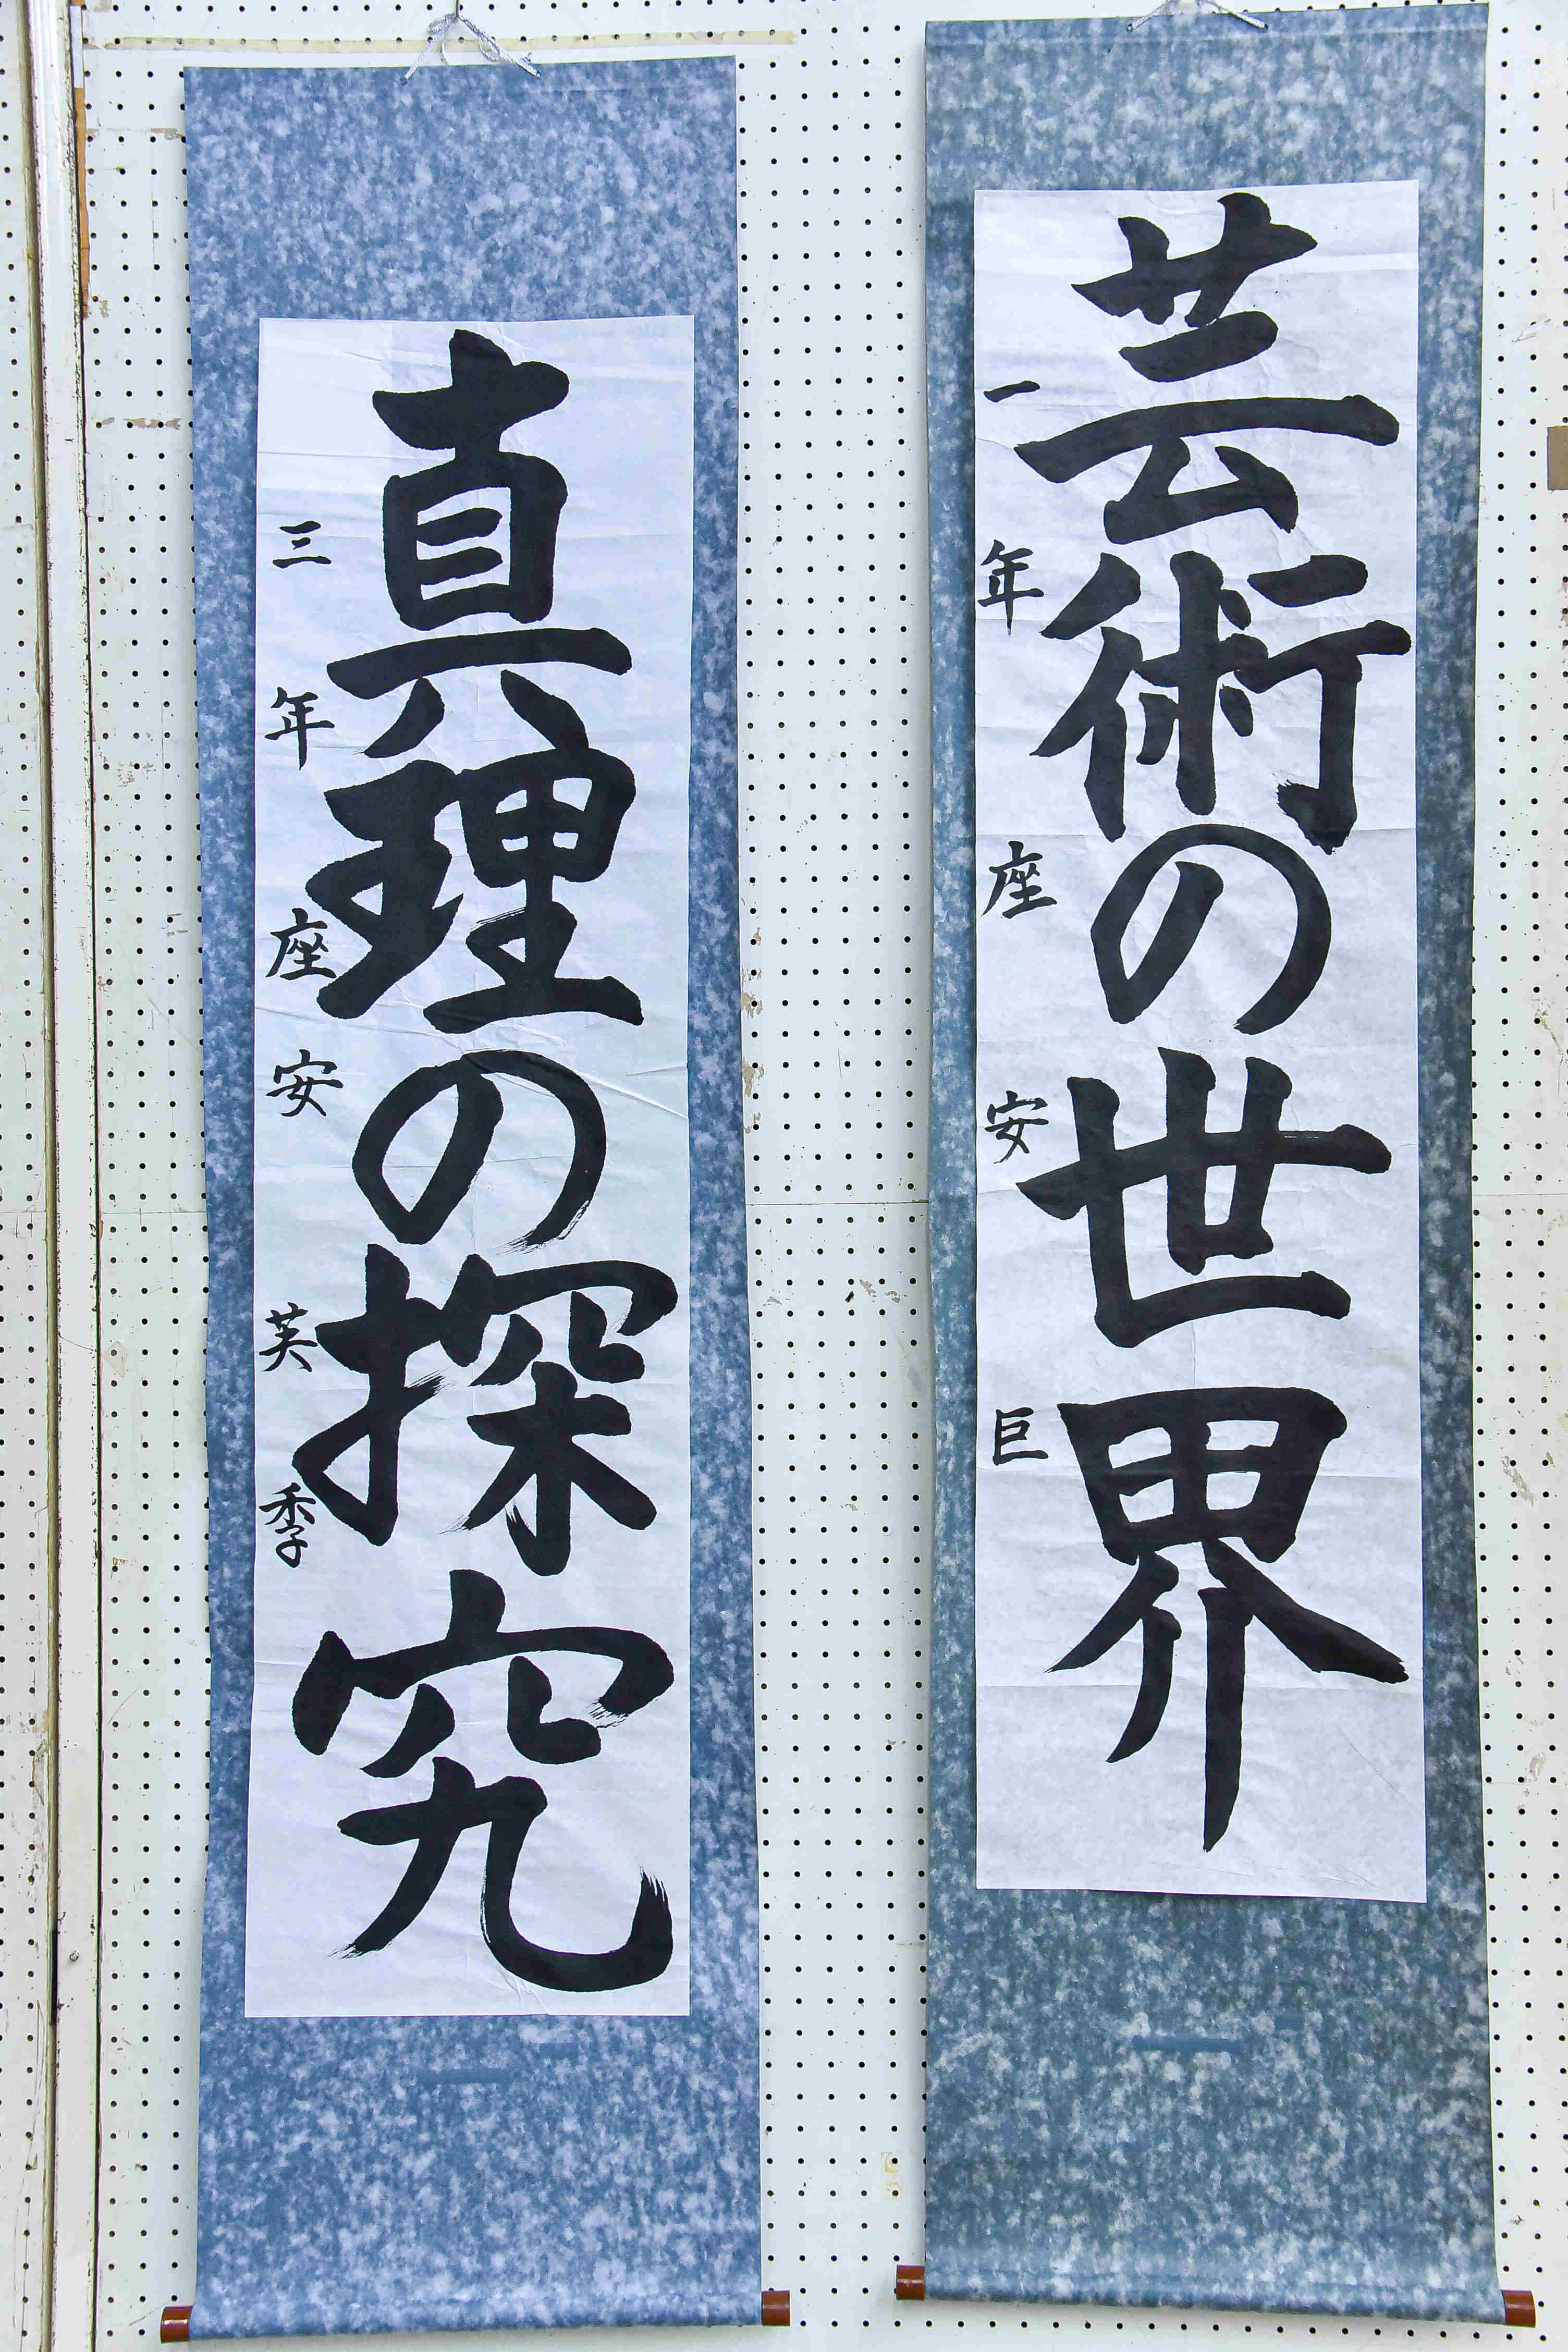 芸術の世界
一年 座安 巨
真理の探究
三年 座安 芙季